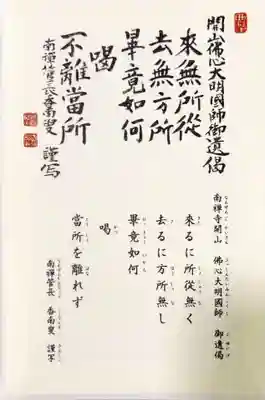 開山佛心大明國師御遺偈
來無所從
去無方所
畢竟如何
喝
不離當所
南禅管長香南叟 謹写
南禅寺開山 佛心大明國師 御遺偈
來るに所從無く
去るに方所無し
畢竟如何
喝
當所を離れず
南禅管長 香南叟 謹写